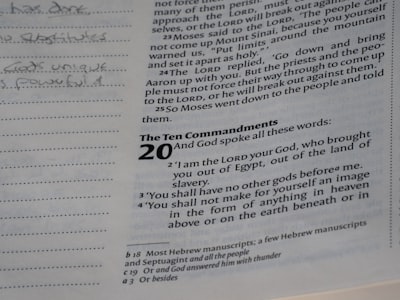 has done
no substitutes
God's unique
powerful
not force their
many of them perish.
approach the LORD, must
selves, or the LORD will break out against
23 Moses said to the LORD, 'The people can-
not come up Mount Sinai, because you yourself
warned us, "Put limits around the mountain
and set it apart as holy."'
24 The LORD replied, 'Go down and bring
Aaron up with you. But the priests and the peo-
ple must not force their way through to come up
to the LORD, or he will break out against them.'
25 So Moses went down to the people and told
them.
The Ten Commandments
20 And God spoke all these words:
2 'I am the LORD your God, who brought
you out of Egypt, out of the land of
slavery.
3 'You shall have no other gods before a me.
4 'You shall not make for yourself an image
in the form of anything in heaven
above or on the earth beneath or in
b 18 Most Hebrew manuscripts; a few Hebrew manuscripts
and Septuagint and all the people
c 19 Or and God answered him with thunder
a 3 Or besides